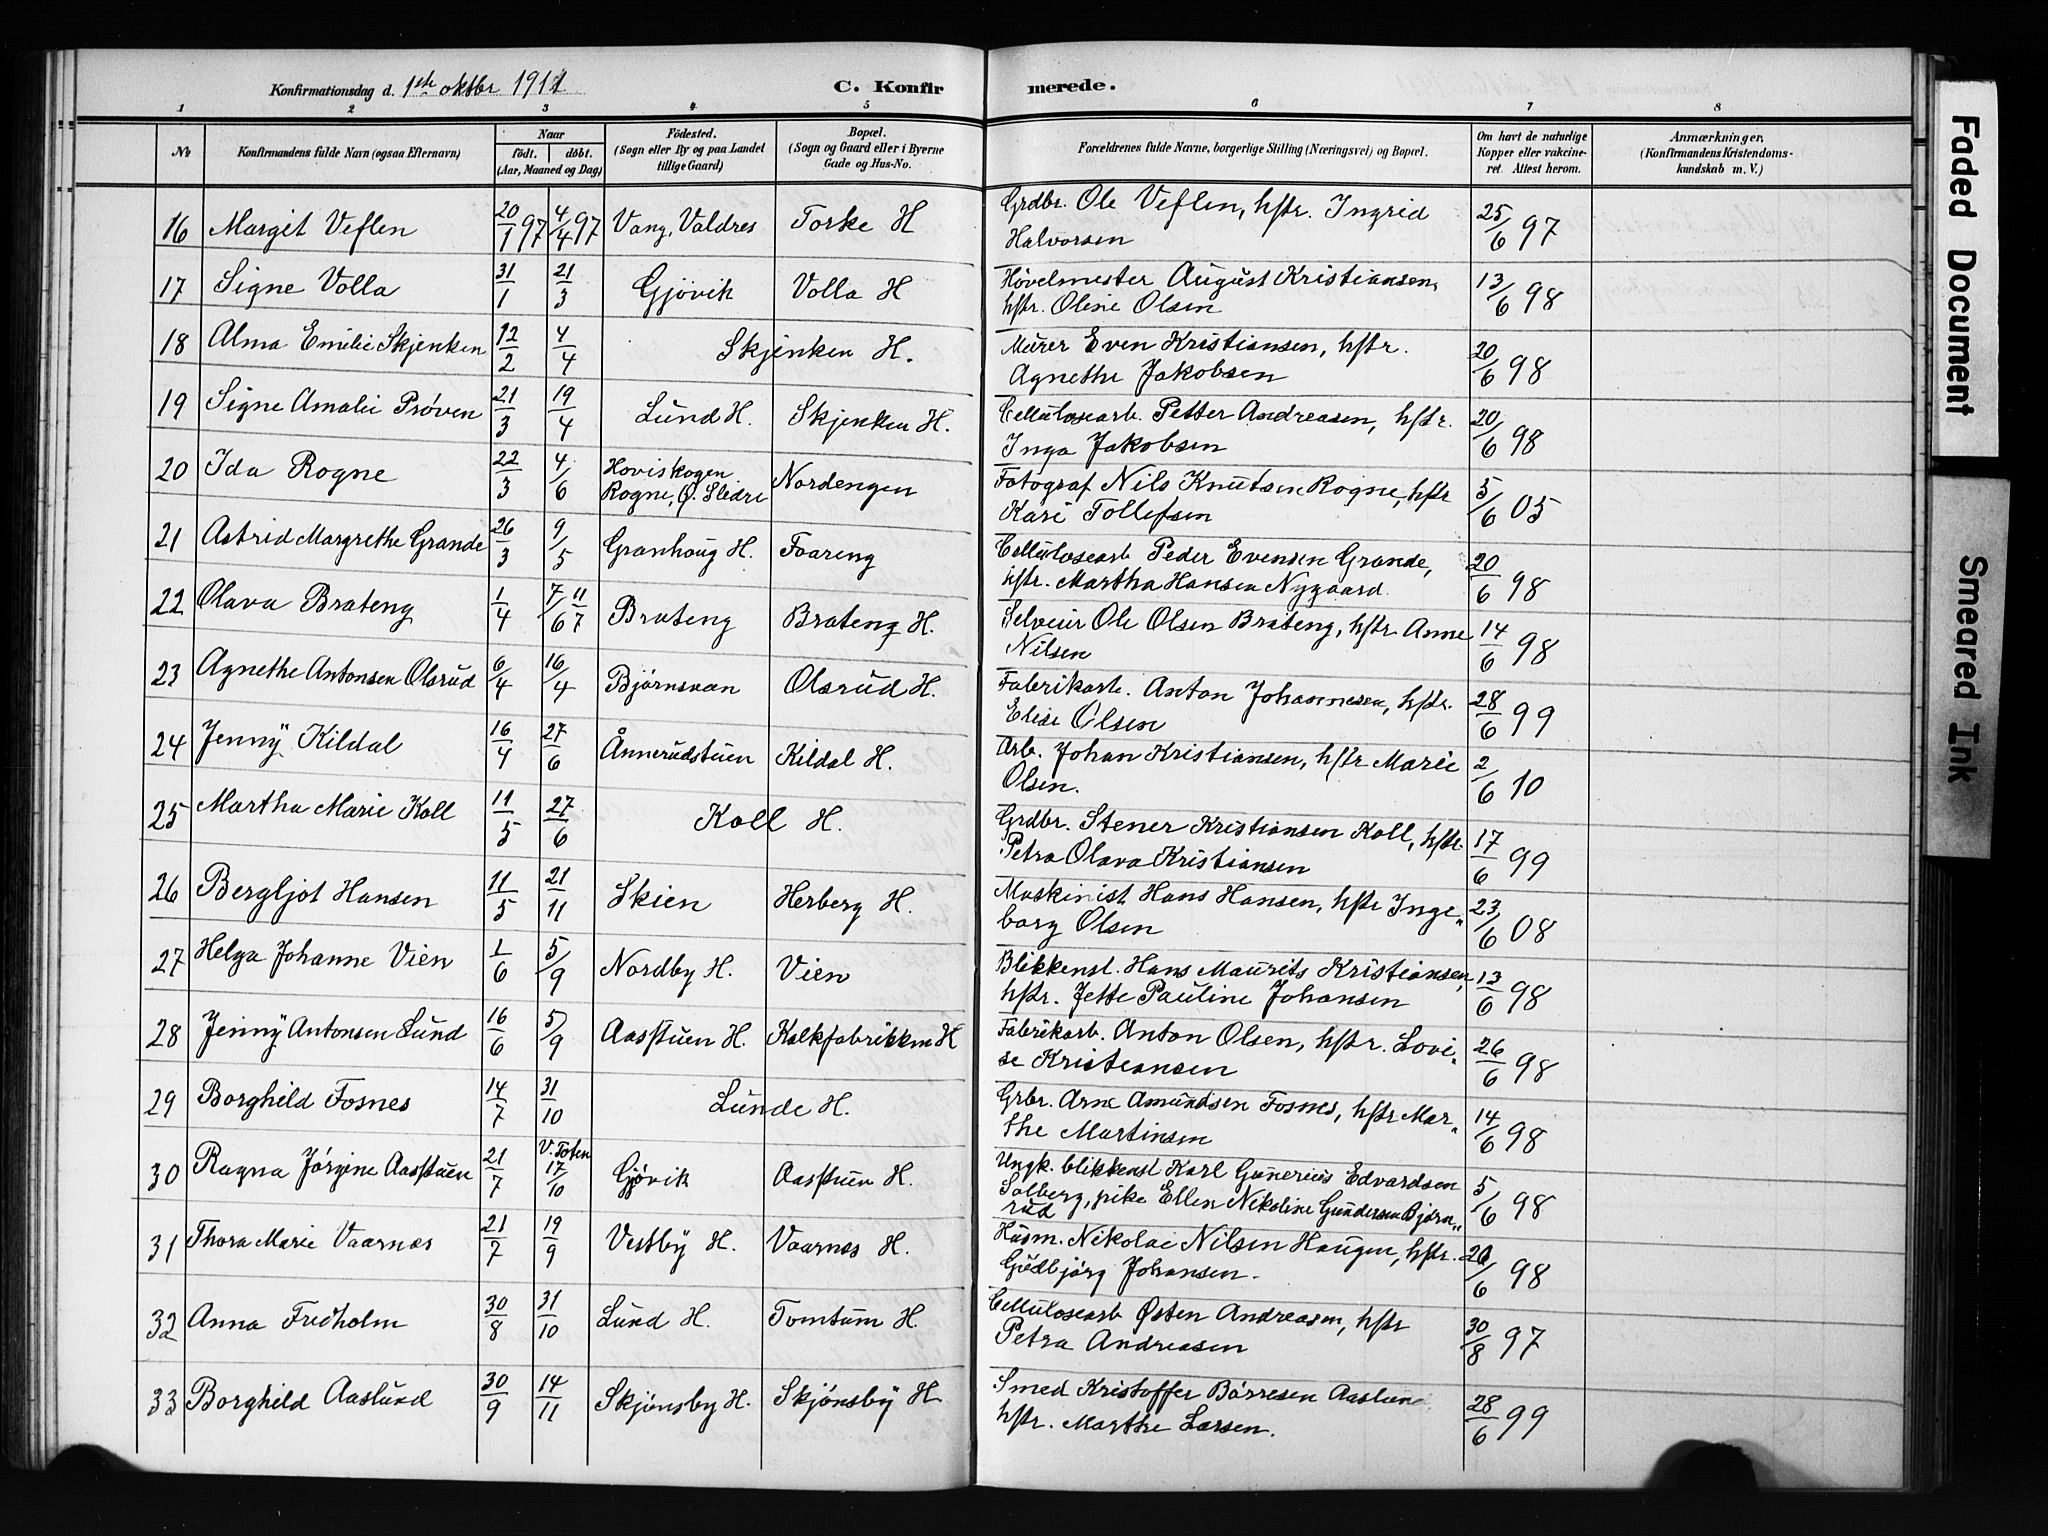 Konfirmationsdag d. 1ste oktbr 1911 C. Konfirmerede.
1 2 3 4 5 6 7 8
No Konfirmandens fulde Navn (ogsaa Efternavn) Naar födt. döbt. (Aar, Maaned og Dag) Födested. (Sogn eller By og paa Landet tillige Gaard) Bopæl. (Sogn og Gaard eller i Byerne Gade og Hus-No. Forældrenes fulde Navne, borgerlige Stilling (Næringsvei) og Bopæl. Om havt de naturlige Kopper eller vakcineret. Attest herom. Anmærkninger, (Konfirmandens Kristendomskundskab m. V.)
16 Margit Veflen 20/1 97 4/4 97 Vang, Valdres Torke H Grdbr. Ole Veflen, hstr. Ingrid 25/6 97
Halvorsen
17 Signe Volla 31/1 21/3 Gjövik Volla H Hövelmester August Kristiansen, 13/6 98
hstr. Oline Olsen
18 Alma Emilie Skjenken 12/2 4/4 Skjenken H. Murer Even Kristiansen, hstr. 20/6 98
Agnethe Jakobsen
19 Signe Amalie Prøven 21/3 19/4 Lund H. Skjenken H. Cellulosearb. Petter Andreasen, hstr. 20/6 98
Inga Jakobsen
20 Ida Rogne 22/3 4/6 Hoviskogen Rogne, Ø. Slidre Nordengen Fotograf Nils Knutsen Rogne, hstr 5/6 05
Kari Tollefsen
21 Astrid Margrethe Grande 26/3 9/5 Granhoug H. Foareng Cellulosearb Peder Evensen Grande, 20/6 98
hstr. Martha Hansen Nygaard.
22 Olava Brateng 1/4 7/6 11/7 Brateng Brateng H. Selveier Ole Olsen Brateng, hstr. Anne 14/6 98
Nilsen
23 Agnethe Antonsen Olsrud 6/4 16/4 Björnsvan Olsrud H. Fabrikarb. Anton Johannesen, hstr. 28/6 99
Elise Olsen
24 Jenny Kildal 16/4 27/6 Ånnerudstuen Kildal H. Arb. Johan Kristiansen, hstr Marie 2/6 10
Olsen.
25 Martha Marie Koll 11/5 27/6 Koll H. Grdbr. Stener Kristiansen Koll, hstr. 17/6 99
Petra Olava Kristiansen
26 Bergljot Hansen 11/5 21/11 Skien Herberg H. Maskinist Hans Hansen, hstr Inge- 23/6 08
borg Olsen
27 Helga Johanne Vien 1/6 5/9 Nordby H. Vien Blikkensl. Hans Maurits Kristiansen, 13/6 98
hstr. Jette Pauline Johansen
28 Jenny Antonsen Lund 16/6 5/9 Aasstuen H. Kalkfabrikken H Fabrikarb. Anton Olsen, hstr. Lovi- 26/6 98
se Kristiansen
29 Borghild Fosnes 14/7 31/10 Lunde H. Grbr. Arne Amundsen Fosnes, hstr Mar- 14/6 98
the Martinsen
30 Ragna Jörgine Aasstuen 21/7 V. Toten 17/10 Gjövik Aasstuen H. Ungk. blikkensl Karl Gunerius Edvardsen 5/6 98
Solberg, pike Ellen Nikoline Gundersen Björn-
rud
31 Thora Marie Vaarnæs 21/7 19/9 Vestby H. Vaarnæs H. Husm. Nikolai Nilsen Haugen, hstr. 20/6 98
Gudbjörg Johansen.
32 Anna Fredholm 30/8 31/10 Lund H. Tomtum H. Cellulosearb Østen Andreasen, hstr 30/8 97
Petra Andreasen
33 Borghild Aaslund 30/9 14/11 Skjönsby H. Skjönsby H Smed Kristoffer Börresen Aaslund 28/6 99
hstr. Marthe Larsen.
Faded Document
Smeared Ink